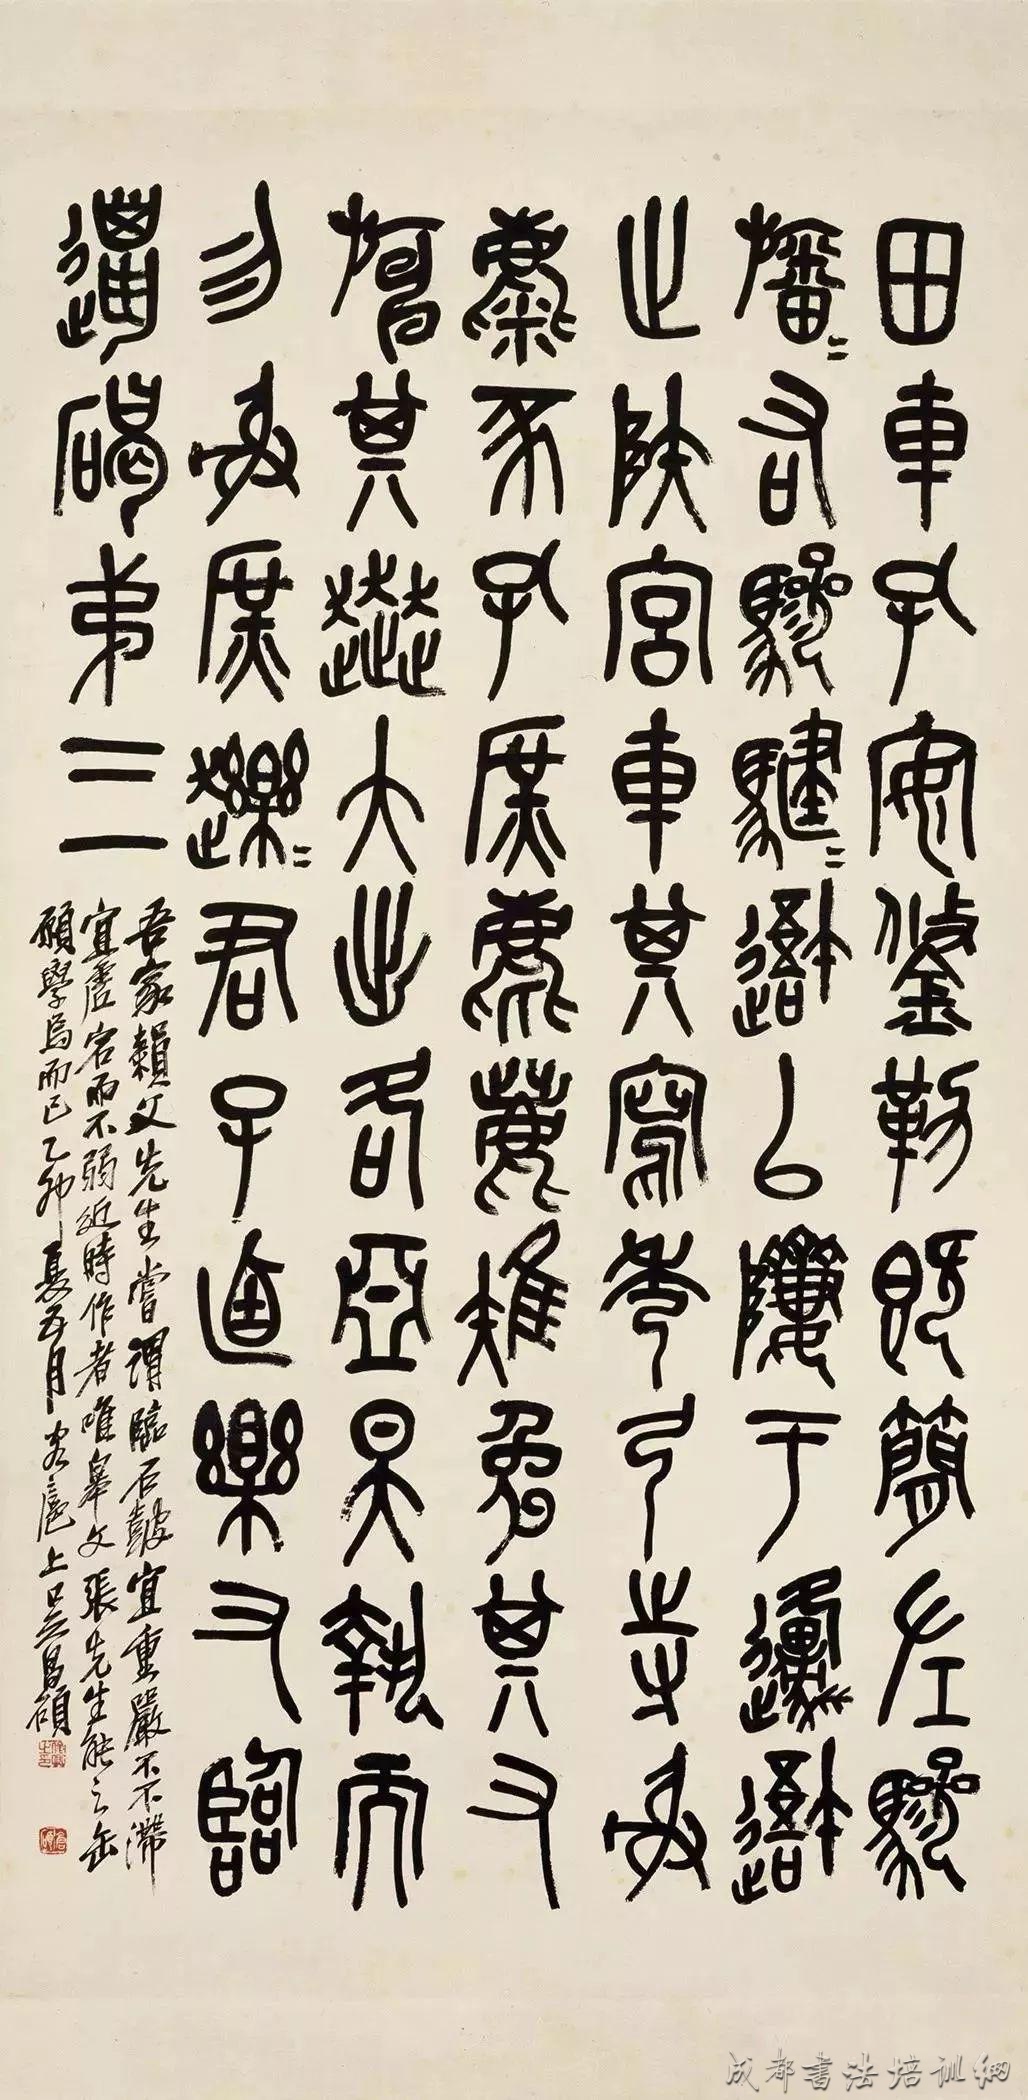 田車孔安鋚勒既簡左驂
旛=右驂騝=䢩以隮于邍䢩
止陝宮車其寫秀弓寺射
麋豕孔庶麀鹿雉兔其又
其奔大出各亞昊執而
勿射庶趯=君子逌樂又臨
遺碣弟三
吾家先生嘗謂臨石鼓宜重嚴而不滯
宜虛宕而不弱近時作者唯皋文張先生能之缶
願學焉而已乙卯夏五月客滬上吳昌碩
成都書法培训網